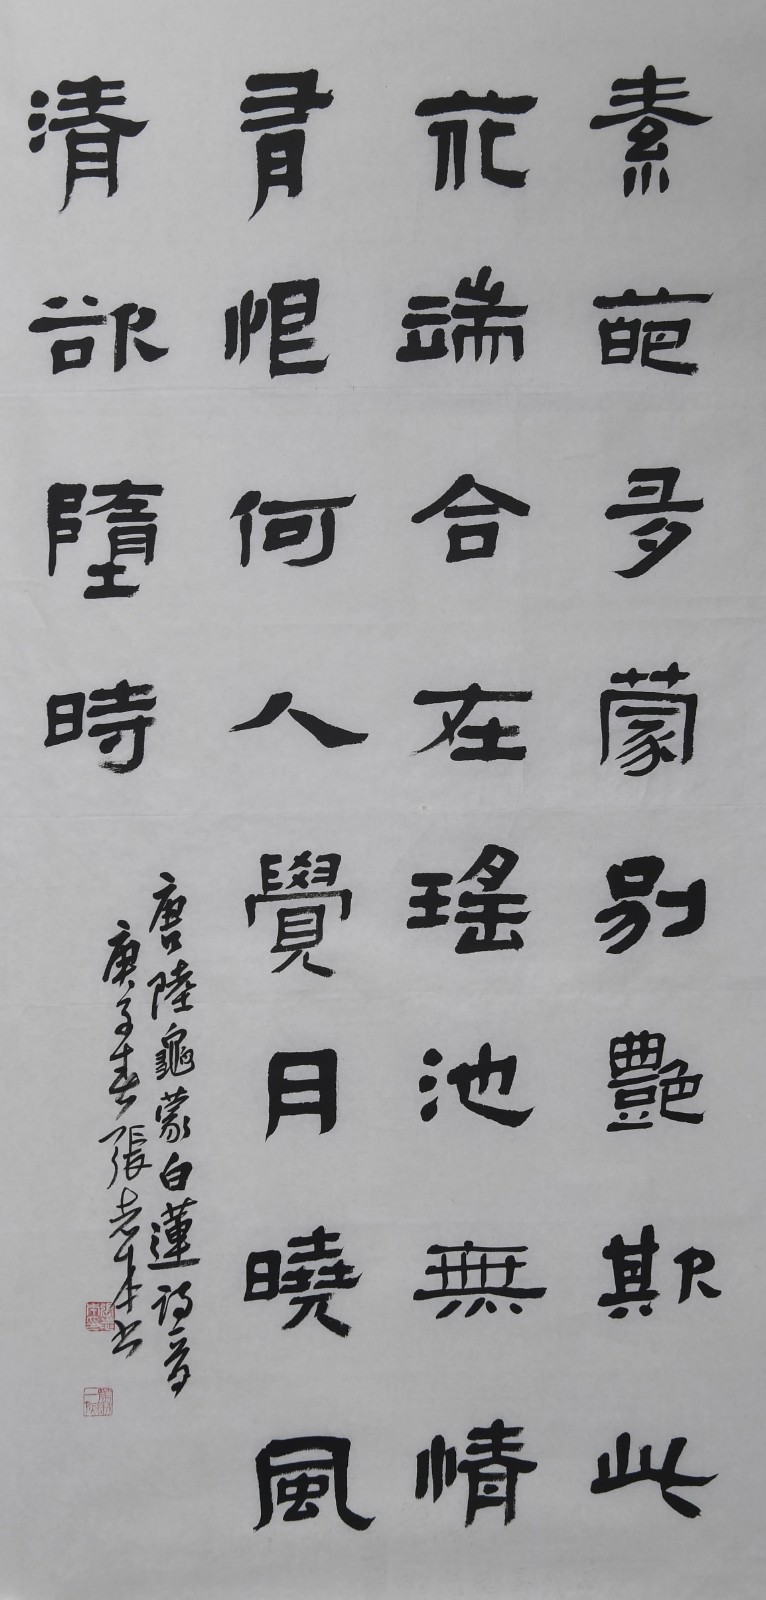 素葩多蒙別艷欺此
花端合在瑤池無情
有恨何人覺月曉風
清欲墮時
唐陸龜蒙白蓮詩一首
庚子春張志本書